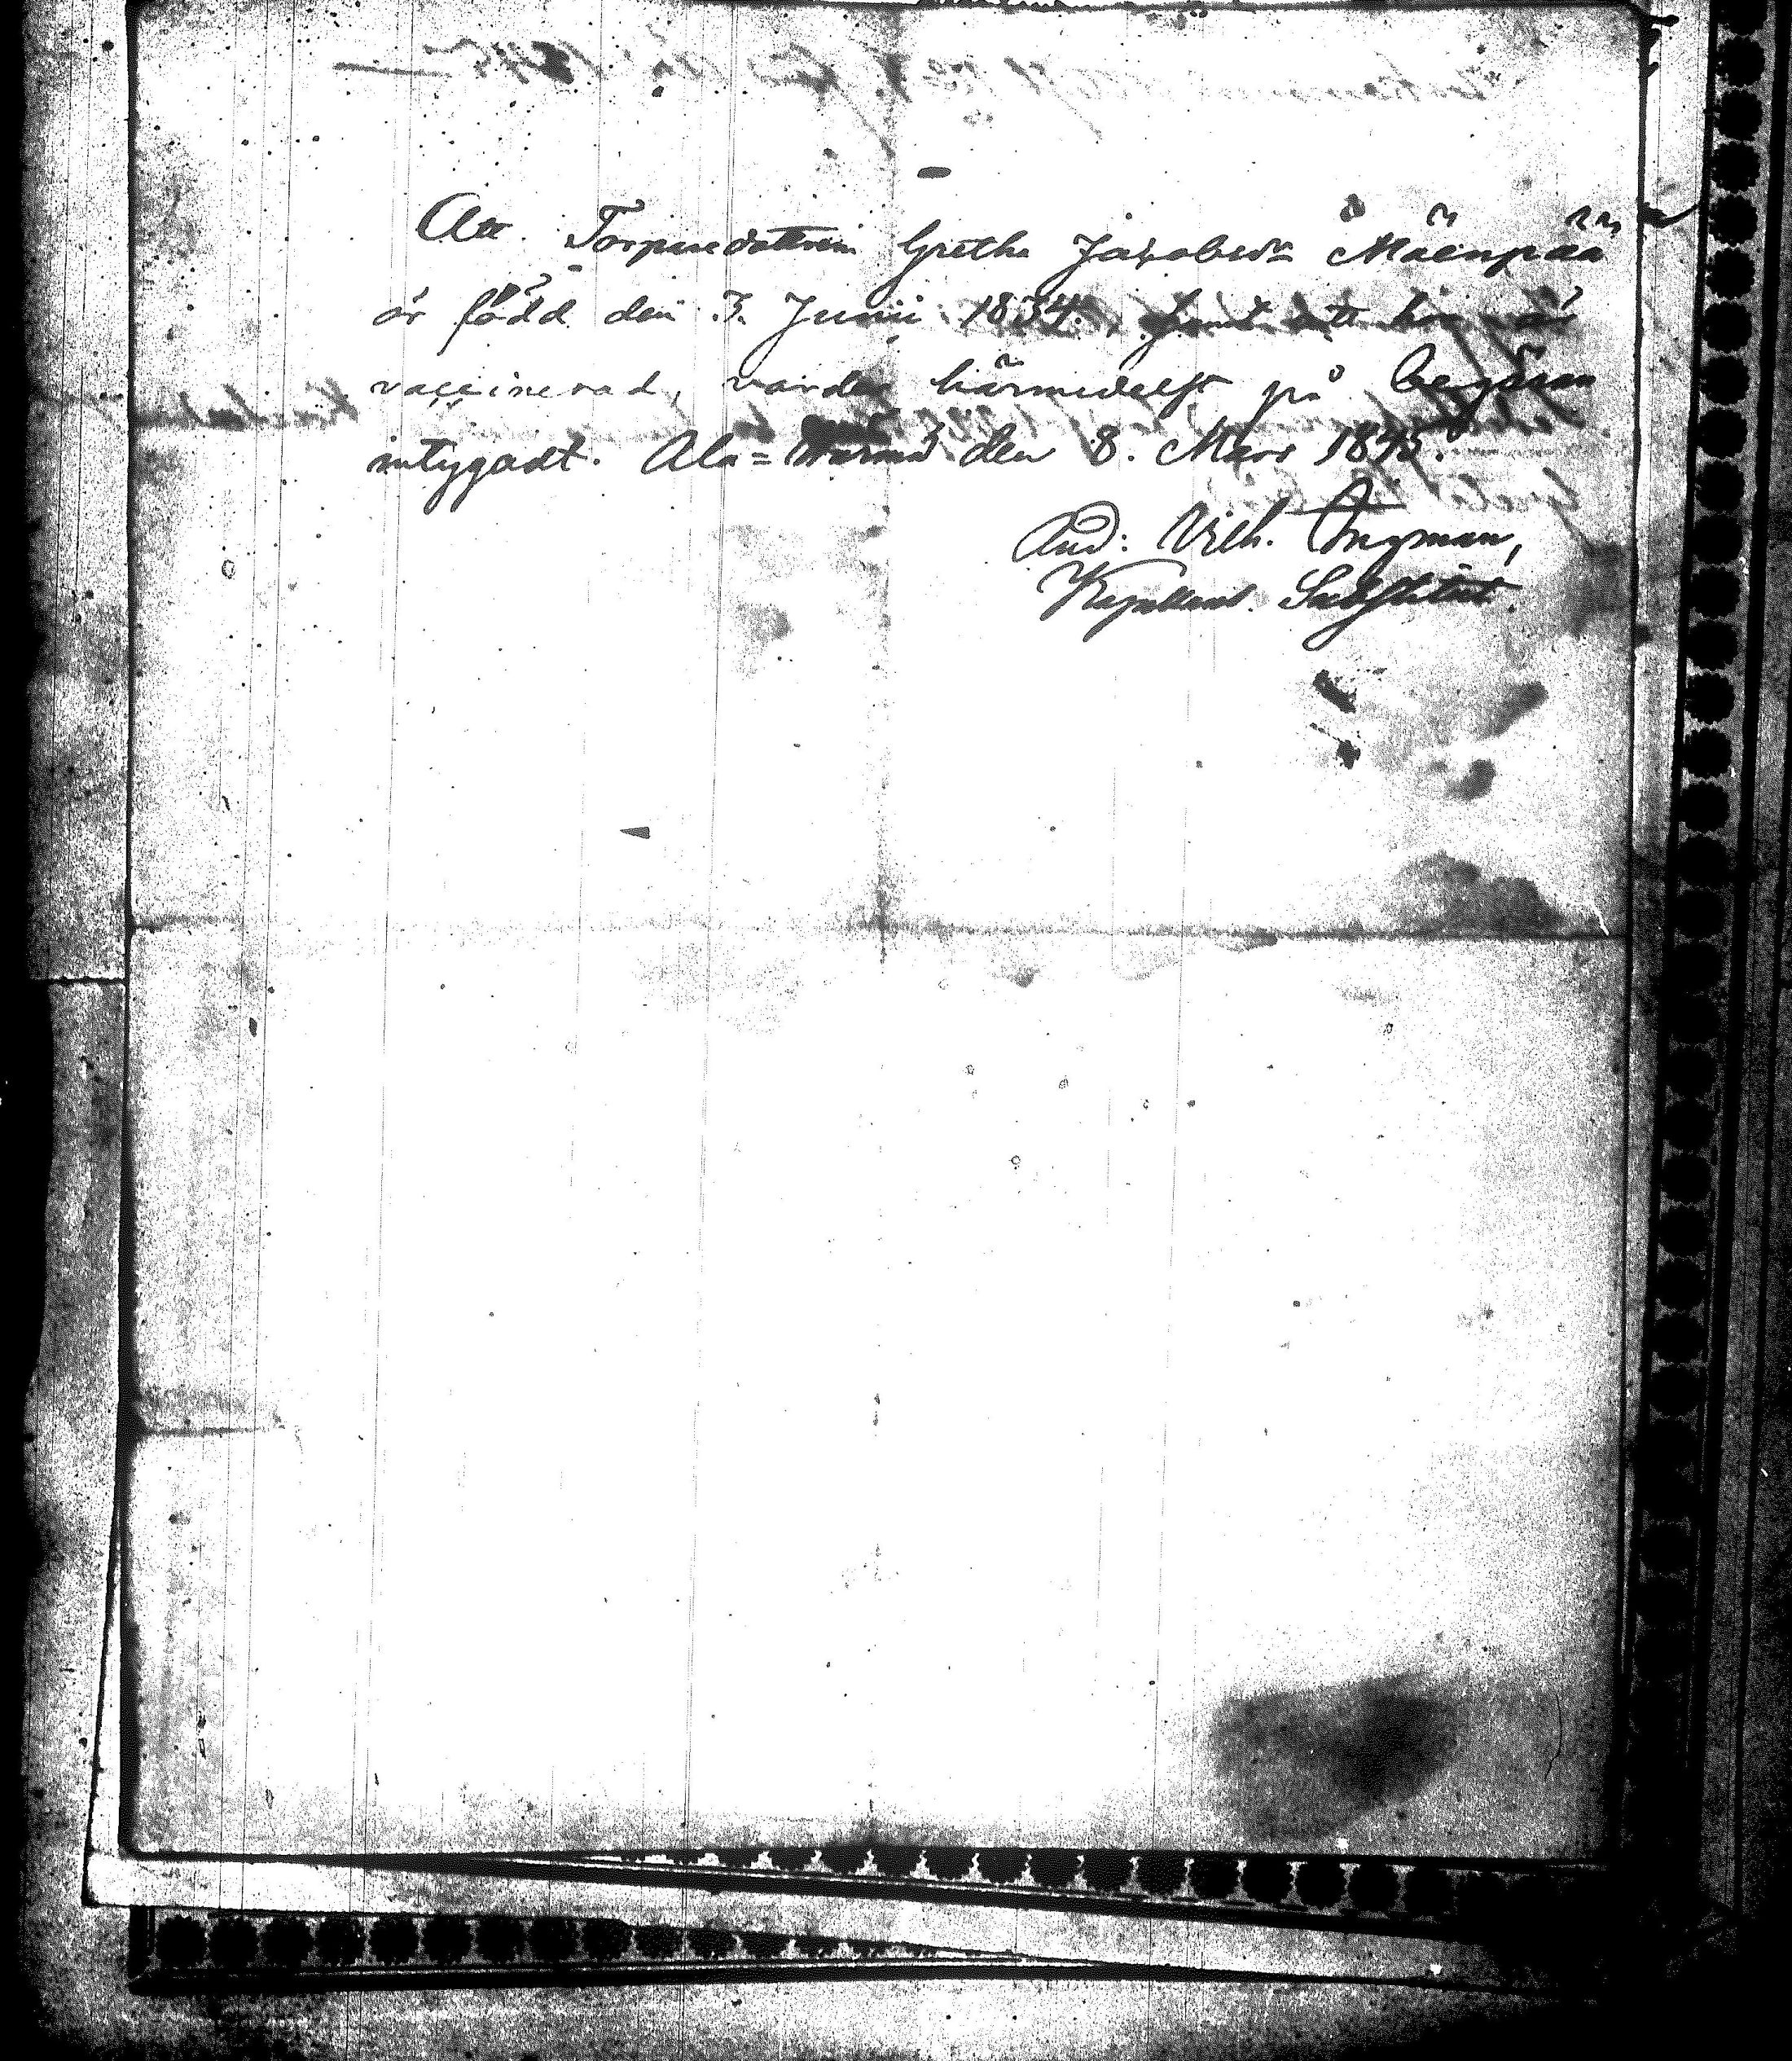 Att Torparedottren Gretha Jakobsdr Mäenpää
är född den 3. Junii 1834, samt att hon är
vaccinerad, varder härmedelst på begäran
intygadt. Ala= den 8. Mars 1845.
And: Vilh. Ingman,
Kapellans Substitut.